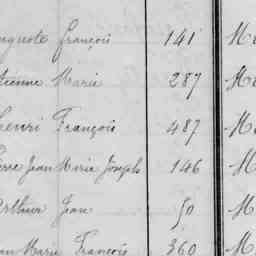 uguste François 141 Me
tienne Marie 287 Me
Henri François 487 Me
erre Jean Marie Joseph 146 M
Arthur Jean 50 M
an Marie François 360 M